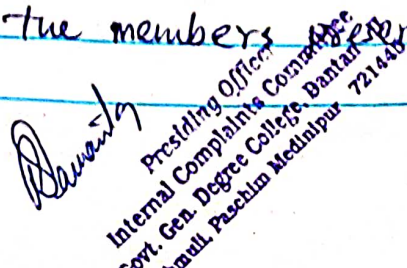 the members
Presiding Officer
Internal Complaints Committee
Govt. Gen. Degree College, Dantan-II
Paschim Medinipur 721445